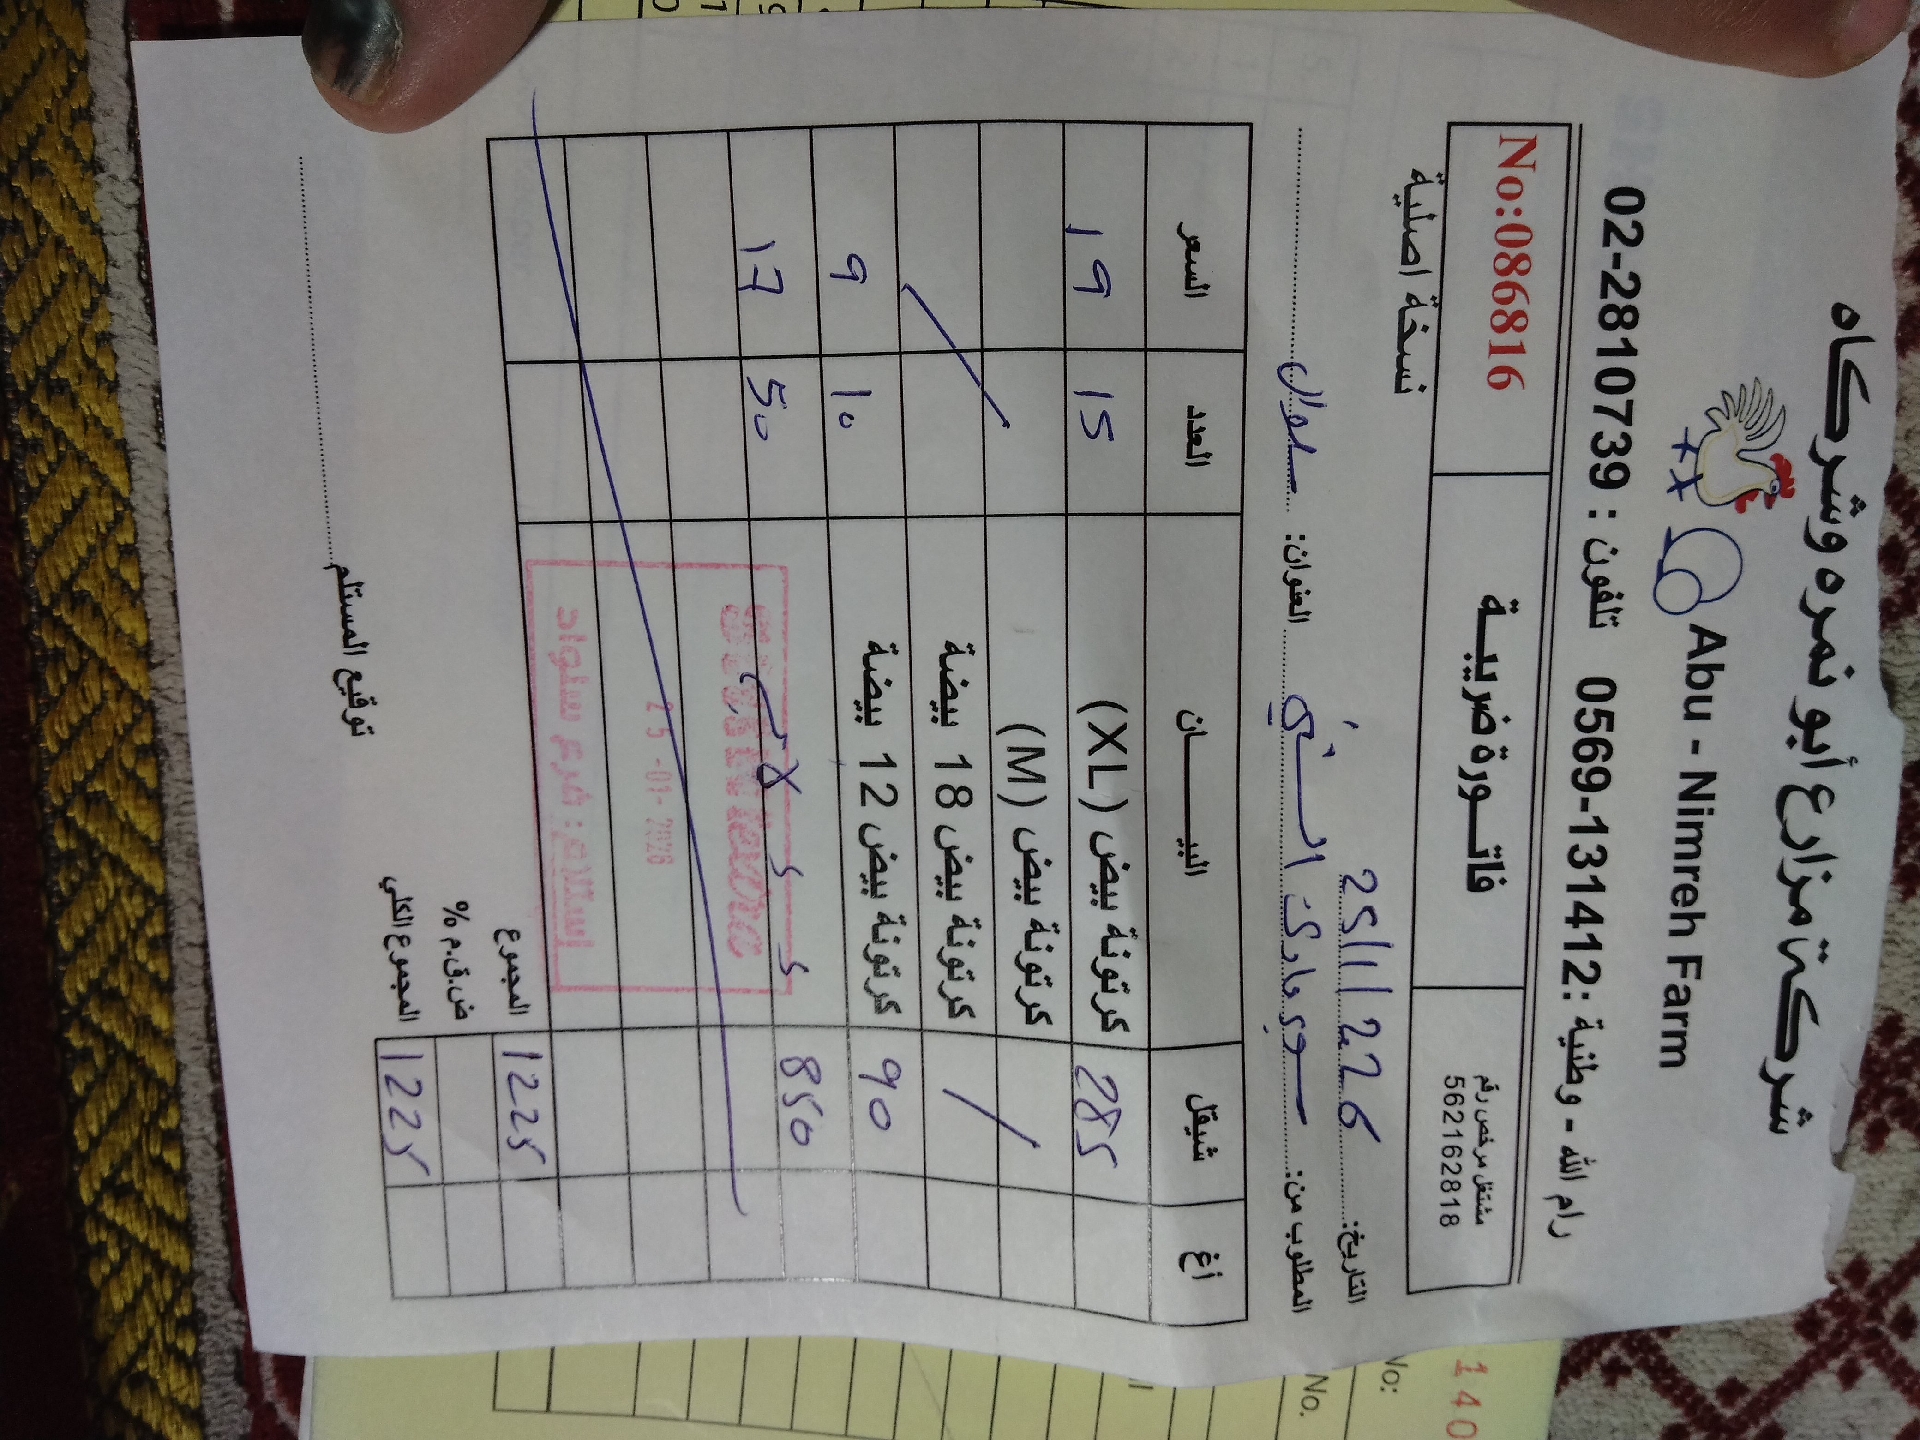 شركة مزارع أبو نمره وشركاه
Abu - Nimreh Farm
رام الله - وطنية: 0569-131412 تلفون : 02-2810739
مشتغل مرخص رقم
562162818
فاتـــورة ضريبـــة
No:086816
نسخة اصلية
التاريخ: 25/1/226
المطلوب من: سوبر ماركت السني العنوان: سلواد
أغ شيقل البيـــــان العدد السعر
285 كرتونة بيض (XL) 15 19
كرتونة بيض (M)
/ كرتونة بيض 18 بيضة
90 كرتونة بيض 12 بيضة 10 9
850 50 17
25-01-2026
استلام: فرع سلواد
1225 المجموع
ض.ق.م %
1225 المجموع الكلي
توقيع المستلم
140
No:
No.